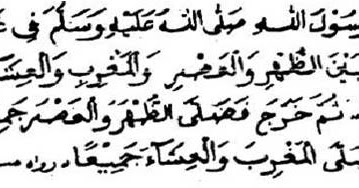 رَسُوْلَ اللهِ صَلَّى اللهُ عَلَيْهِ وَسَلَّمَ فِى
بَيْنَ الظُّهْرِ وَالْعَصْرِ وَالْمَغْرِبِ وَالْعِشَاءِ
ثُمَّ خَرَجَ فَصَلَّى الظُّهْرَ وَالْعَصْرَ
صَلَّى الْمَغْرِبَ وَالْعِشَاءَ جَمِيْعًا. رواه